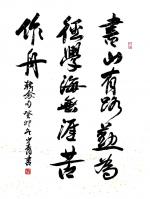 書山有路勤為
徑學海無涯苦
作舟